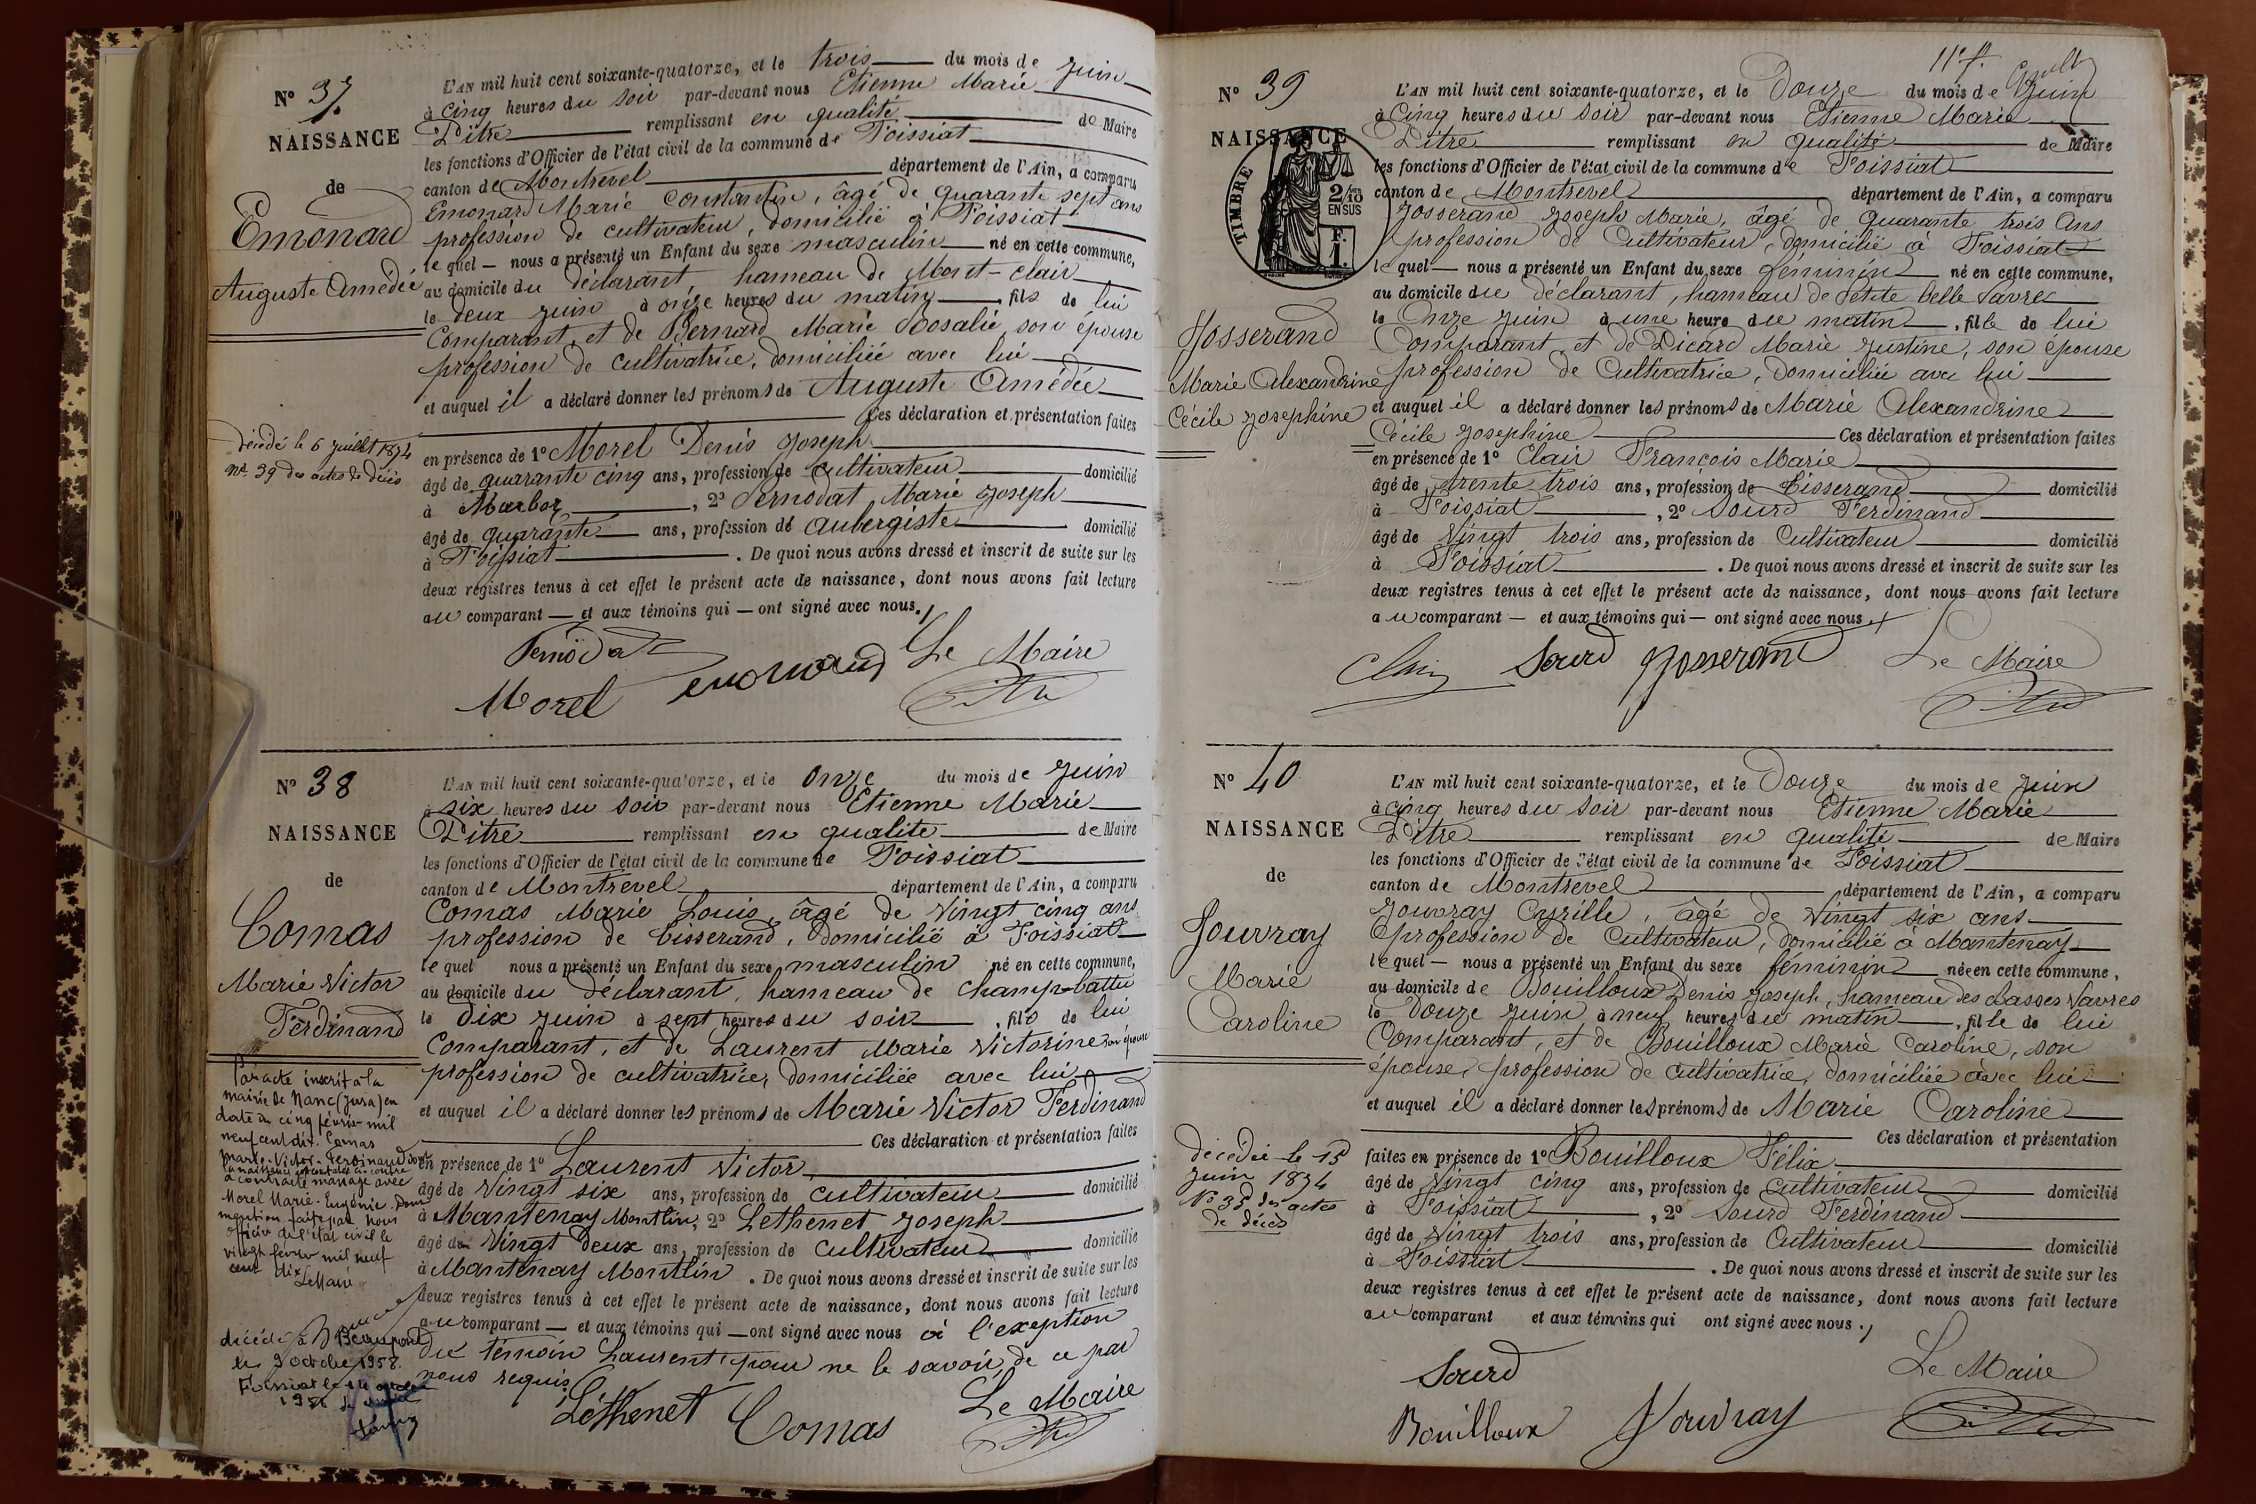 N° 37
NAISSANCE
de
Emonard
Auguste Amédée
décédé le 6 juillet 1874
N° 39 des actes de décès
L'AN mil huit cent soixante-quatorze, et le trois du mois de juin
à cinq heures du soir par-devant nous Etienne Marie
Pitre remplissant en qualité de Maire
les fonctions d'Officier de l'état civil de la commune de Foissiat
canton de Montrevel département de l'Ain, a comparu
Emonard Marie Constantin, âgé de quarante sept ans
profession de cultivateur, domicilié à Foissiat
lequel nous a présenté un Enfant du sexe masculin né en cette commune,
au domicile du déclarant, hameau de Mont-clair
le deux juin à onze heures du matin, fils de lui
Comparant, et de Bernard Marie Rosalie, son épouse
profession de cultivatrice, domiciliée avec lui
et auquel il a déclaré donner les prénoms de Auguste Amédée
Ces déclaration et présentation faites
en présence de 1° Morel Denis Joseph
âgé de quarante cinq ans, profession de cultivateur domicilié
à Marboz, 2° Pernodat Marie Joseph
âgé de quarante ans, profession de aubergiste domicilié
à Foissiat. De quoi nous avons dressé et inscrit de suite sur les
deux registres tenus à cet effet le présent acte de naissance, dont nous avons fait lecture
au comparant et aux témoins qui ont signé avec nous.
Pernodat
Morel Emonard Le Maire
Pitre
N° 38
NAISSANCE
de
Comas
Marie Victor
Ferdinand
Par acte inscrit à la
mairie de Nanc (Jura) en
date du cinq février mil
neuf cent dix. Comas
Marie-Victor-Ferdinand dont
la naissance est constatée ci-contre
a contracté mariage avec
Morel Marie-Eugénie. Dont
mention faite par nous
officier de l'état civil le
vingt février mil neuf
cent dix
Le Maire
décédé à Beaupont
le 9 octobre 1958.
Foissiat le
L'AN mil huit cent soixante-quatorze, et le onze du mois de juin
à six heures du soir par-devant nous Etienne Marie
Pitre remplissant en qualité de Maire
les fonctions d'Officier de l'état civil de la commune de Foissiat
canton de Montrevel département de l'Ain, a comparu
Comas Marie Louis, âgé de vingt cinq ans
profession de tisserand, domicilié à Foissiat
lequel nous a présenté un Enfant du sexe masculin né en cette commune,
au domicile du déclarant, hameau de Champ-battu
le dix juin à sept heures du soir, fils de lui
Comparant, et de Laurent Marie Victorine son épouse
profession de cultivatrice, domiciliée avec lui
et auquel il a déclaré donner les prénoms de Marie Victor Ferdinand
Ces déclaration et présentation faites
en présence de 1° Laurent Victor
âgé de vingt six ans, profession de cultivateur domicilié
à Mantenay Montlin, 2° Lethenet Joseph
âgé de vingt deux ans, profession de cultivateur domicilié
à Mantenay Montlin. De quoi nous avons dressé et inscrit de suite sur les
deux registres tenus à cet effet le présent acte de naissance, dont nous avons fait lecture
au comparant et aux témoins qui ont signé avec nous à l'exeption
du témoin Laurent, pour ne le savoir, de ce par
nous requis.
Léthenet Comas Le Maire
Pitre
11e f.
N° 39
NAISSANCE
TIMBRE
2/10
EN SUS
F.
1.
Josserand
Marie Alexandrine
Cécile Josephine
L'AN mil huit cent soixante-quatorze, et le Douze du mois de juin
à Cinq heures du soir par-devant nous Etienne Marie
Pitre remplissant en qualité de Maire
les fonctions d'Officier de l'état civil de la commune de Foissiat
canton de Montrevel département de l'Ain, a comparu
Josserand Joseph Marie, âgé de quarante trois ans
profession de Cultivateur, domicilié à Foissiat
lequel nous a présenté un Enfant du sexe féminin né en cette commune,
au domicile du déclarant, hameau de petite belle Lavre
le Onze juin à une heure du matin, fille de lui
Comparant et de Picard Marie Justine, son épouse
profession de Cultivatrice, domiciliée avec lui
et auquel il a déclaré donner les prénoms de Marie Alexandrine
Cécile Josephine Ces déclaration et présentation faites
en présence de 1° Clair François Marie
âgé de trente trois ans, profession de tisserand domicilié
à Foissiat, 2° Sourd Ferdinand
âgé de Vingt trois ans, profession de Cultivateur domicilié
à Foissiat. De quoi nous avons dressé et inscrit de suite sur les
deux registres tenus à cet effet le présent acte de naissance, dont nous avons fait lecture
au comparant et aux témoins qui ont signé avec nous
Clair Sourd Josserand Le Maire
Pitre
N° 40
NAISSANCE
de
Jouvray
Marie
Caroline
décédée le 15
juin 1874
N° 35 des actes
de décès
L'AN mil huit cent soixante-quatorze, et le Douze du mois de juin
à cinq heures du soir par-devant nous Etienne Marie
Pitre remplissant en qualité de Maire
les fonctions d'Officier de l'état civil de la commune de Foissiat
canton de Montrevel département de l'Ain, a comparu
Jouvray Cyrille, âgé de vingt six ans
profession de Cultivateur, domicilié à Mantenay
lequel nous a présenté un Enfant du sexe féminin née en cette commune,
au domicile de Bouilloux Denis Joseph, hameau des Lasses Navres
le Douze juin à neuf heures du matin, fille de lui
Comparant, et de Bouilloux Marie Caroline, son
épouse, profession de cultivatrice, domiciliée avec lui
et auquel il a déclaré donner les prénoms de Marie Caroline
Ces déclaration et présentation
faites en présence de 1° Bouilloux Félix
âgé de Vingt cinq ans, profession de cultivateur domicilié
à Foissiat, 2° Sourd Ferdinand
âgé de Vingt trois ans, profession de Cultivateur domicilié
à Foissiat. De quoi nous avons dressé et inscrit de suite sur les
deux registres tenus à cet effet le présent acte de naissance, dont nous avons fait lecture
au comparant et aux témoins qui ont signé avec nous.
Sourd Le Maire
Bouilloux Jouvray Pitre